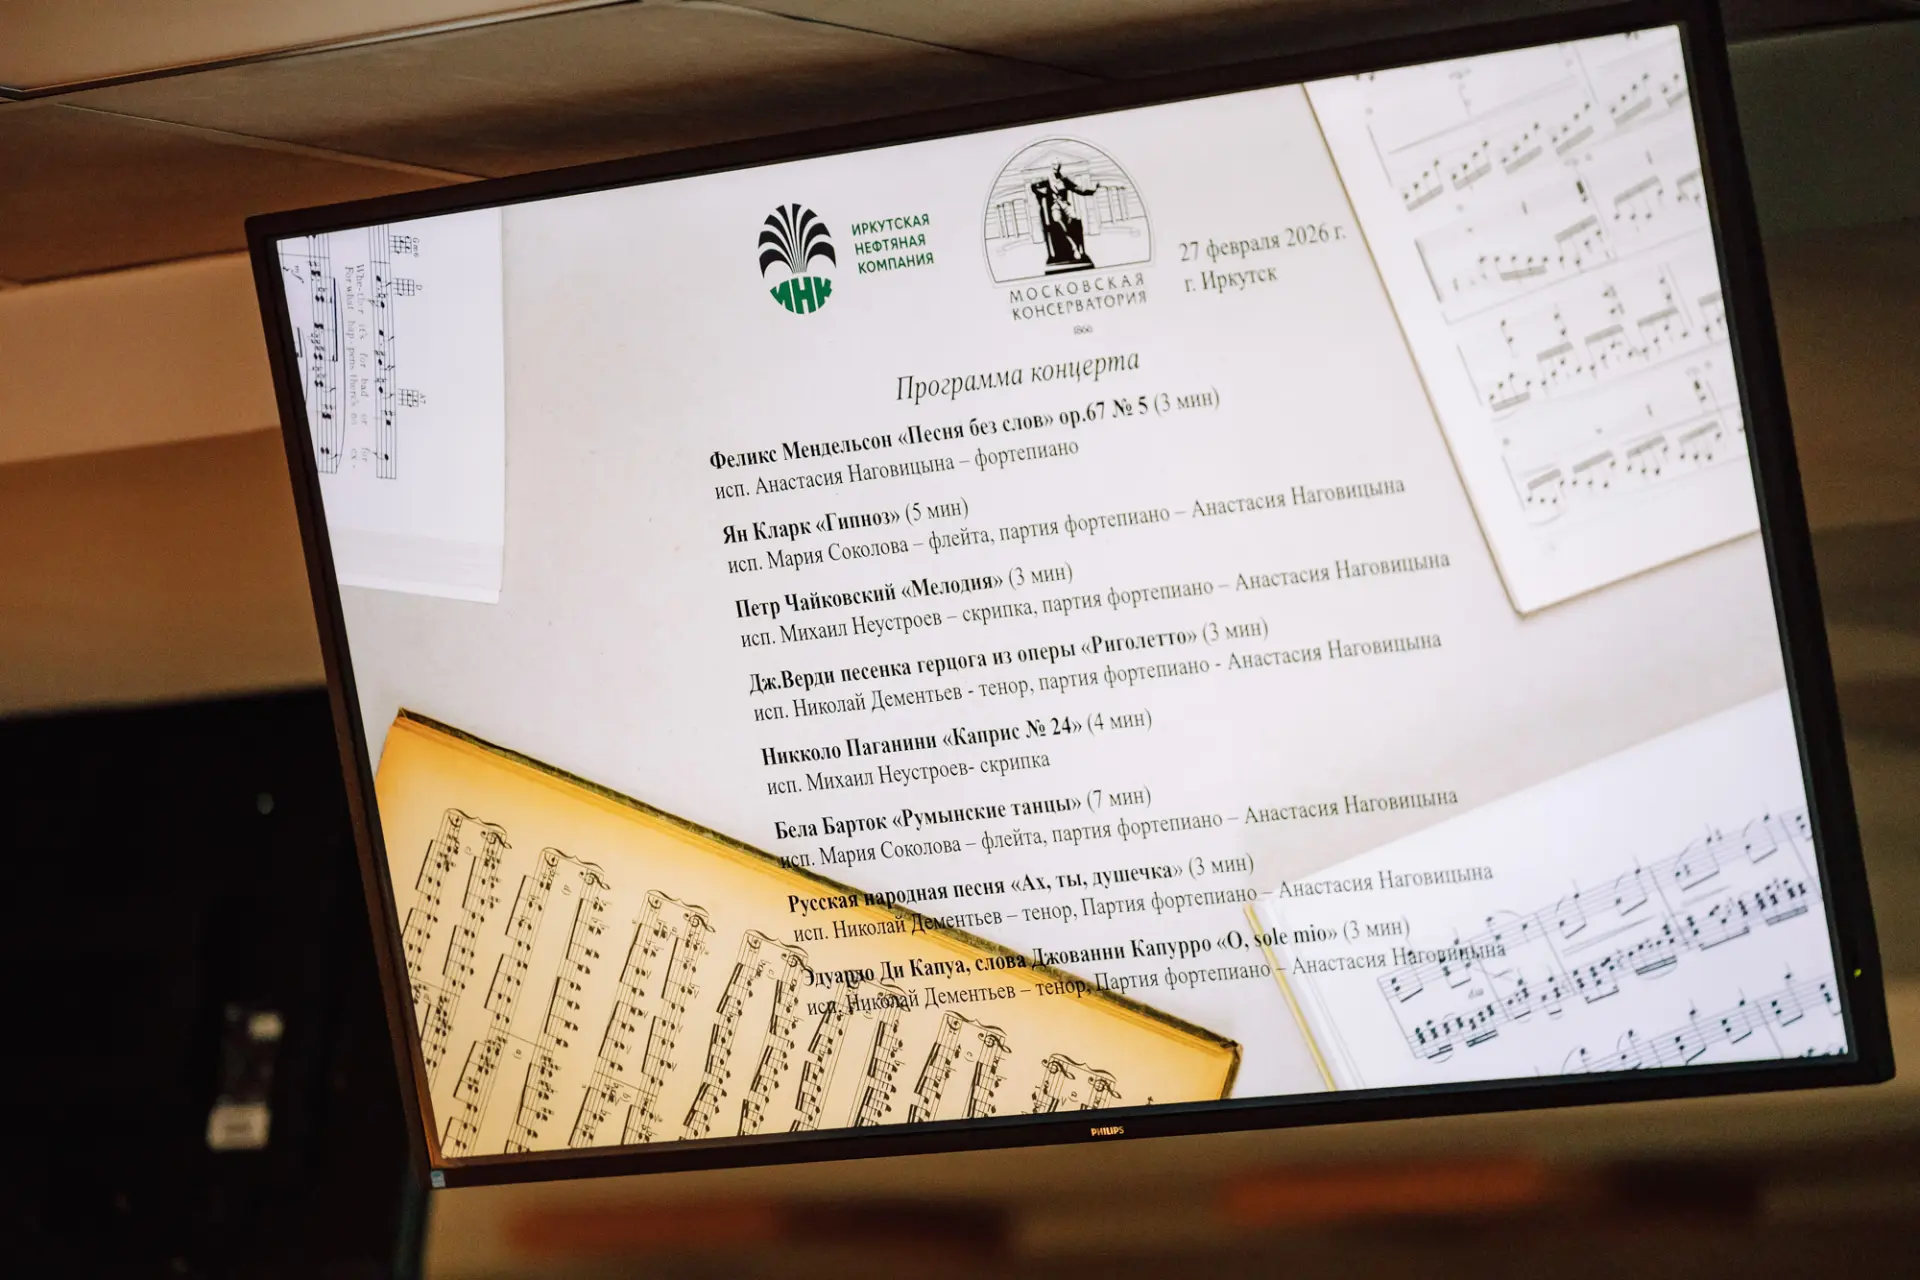 ИРКУТСКАЯ
НЕФТЯНАЯ
КОМПАНИЯ
ИНК
МОСКОВСКАЯ
КОНСЕРВАТОРИЯ
1866
27 февраля 2026 г.
г. Иркутск
Программа концерта
Феликс Мендельсон «Песня без слов» op.67 № 5 (3 мин)
исп. Анастасия Наговицына – фортепиано
Ян Кларк «Гипноз» (5 мин)
исп. Мария Соколова – флейта, партия фортепиано – Анастасия Наговицына
Петр Чайковский «Мелодия» (3 мин)
исп. Михаил Неустроев – скрипка, партия фортепиано – Анастасия Наговицына
Дж.Верди песенка герцога из оперы «Риголетто» (3 мин)
исп. Николай Дементьев - тенор, партия фортепиано - Анастасия Наговицына
Никколо Паганини «Каприс № 24» (4 мин)
исп. Михаил Неустроев- скрипка
Бела Барток «Румынские танцы» (7 мин)
исп. Мария Соколова – флейта, партия фортепиано – Анастасия Наговицына
Русская народная песня «Ах, ты, душечка» (3 мин)
исп. Николай Дементьев – тенор, Партия фортепиано – Анастасия Наговицына
Эдуардо Ди Капуа, слова Джованни Капурро «O, sole mio» (3 мин)
исп. Николай Дементьев – тенор, Партия фортепиано – Анастасия Наговицына
Gm6
D
A7
Whe-ther it's for bad or for
For what hap-pens there's no ex-
PHILIPS